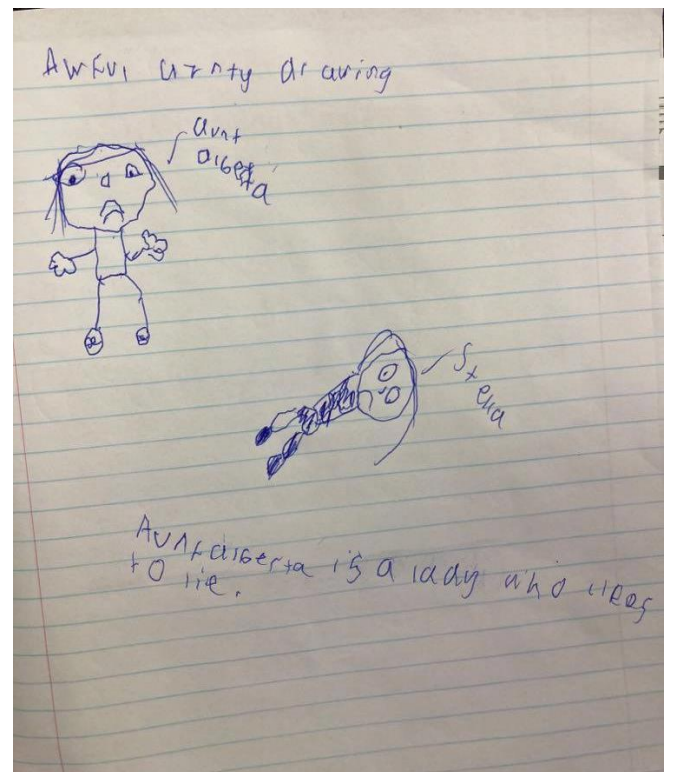 Awful aunty drawing
aunt
alberta
Stella
Aunt alberta is a lady who likes
to lie.